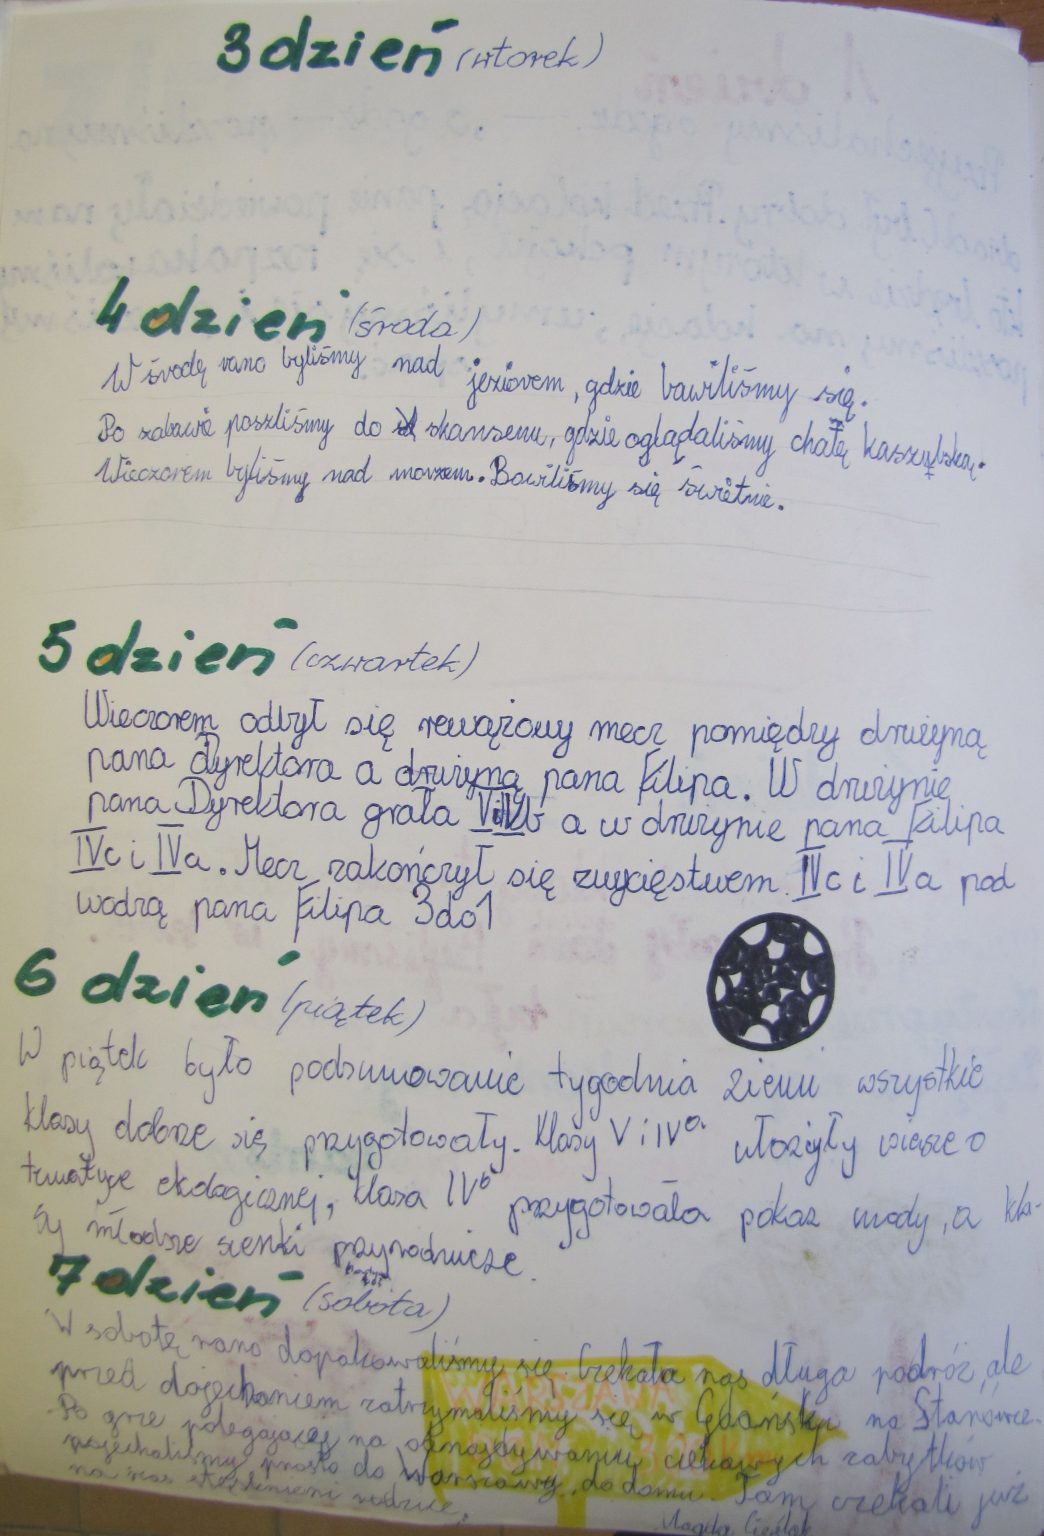 3 dzień (wtorek)
4 dzień (środa)
W środę rano byliśmy nad jeziorem, gdzie bawiliśmy się.
Po zabawie poszliśmy do skansenu, gdzie oglądaliśmy chatę kaszubską.
Wieczorem byliśmy nad morzem. Bawiliśmy się świetnie.
5 dzień (czwartek)
Wieczorem odbył się rewążowy mecz pomiędzy drużyną
pana Dyrektora a drużyną pana Filipa. W drużynie
pana Dyrektora grała V i IVb a w drużynie pana Filipa
IVc i IVa. Mecz zakończył się zwycięstwem IVc i IVa pod
wodzą pana Filipa 3do1
6 dzień (piątek)
W piątek było podsumowanie tygodnia Ziemi wszystkie
klasy dobrze się przygotowały. Klasy V i IVa ułożyły wiersze o
tematyce ekologicznej, klasa IVb przygotowała pokaz mody, a kla-
sy młodsze scenki przyrodnicze.
7 dzień (sobota)
W sobotę rano dopakowaliśmy się. Czekała nas długa podróż, ale
przed dojechaniem zatrzymaliśmy się w Gdańsku na Starówce.
Po grze polegającej na odnajdywaniu ciekawych zabytków
pojechaliśmy prosto do Warszawy, do domu. Tam czekali już
na nas stęsknieni rodzice.
WARSZAWA